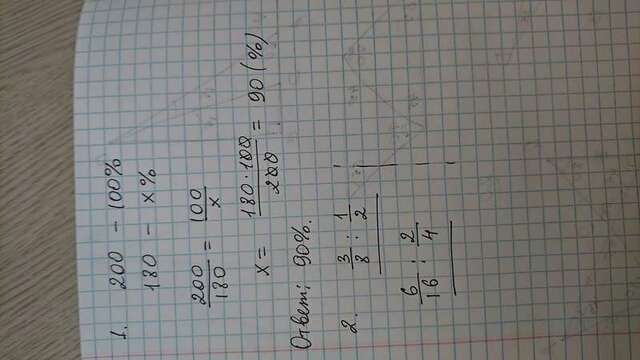 1. 200 - 100%
180 - x%
200/180 = 100/x
x = 180 · 100/200 = 90 (%)
Ответ: 90%.
2. 3/8 : 1/2
6/16 : 2/4